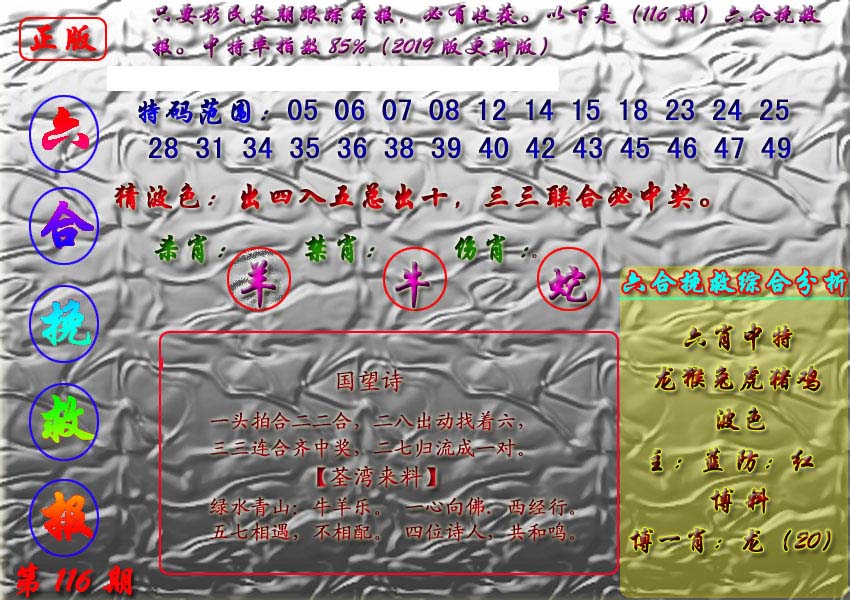 只要彩民长期跟踪本报，必有收获。以下是（116 期）六合挽救
报。中特率指数 85%（2019 版更新版）
正版
特码范围：05 06 07 08 12 14 15 18 23 24 25
28 31 34 35 36 38 39 40 42 43 45 46 47 49
猜波色：出四入五总出十，三三联合必中奖。
杀肖： 禁肖： 伤肖：。
羊 牛 蛇
六
合
挽
救
报
第 116 期
国望诗
一头拍合二二合，二八出动找着六，
三三连合齐中奖，二七归流成一对。
【荃湾来料】
绿水青山；牛羊乐。 一心向佛．西经行。
五七相遇，不相配。 四位诗人，共和鸣。
六合挽救综合分析
六肖中特
龙猴兔虎猪鸡
波色
主：蓝防：红
博料
博一肖：龙（20）